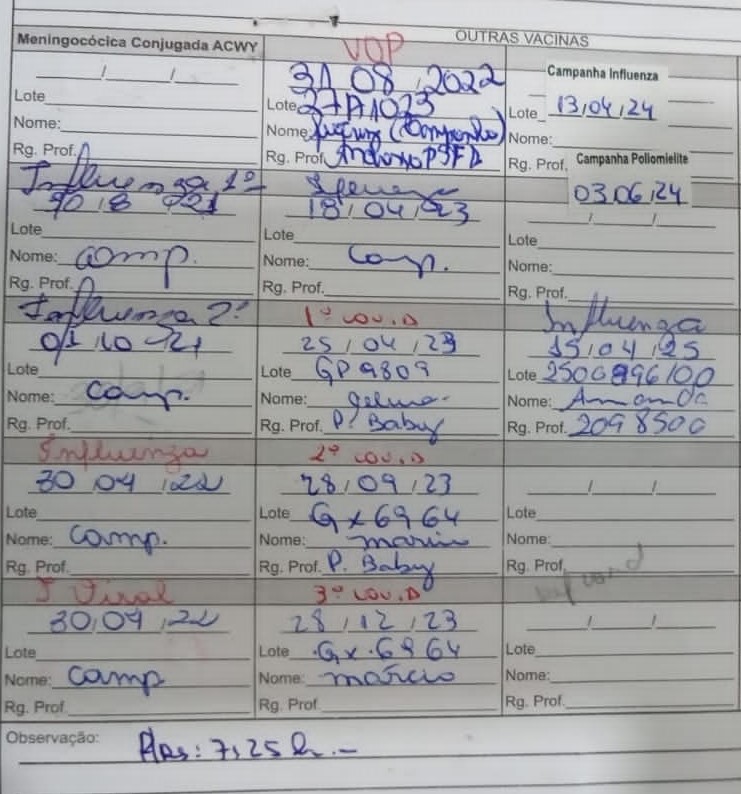 OUTRAS VACINAS
Meningocócica Conjugada ACWY
___/___/___
Lote
Nome:
Rg. Prof.
VOP
31 08 2022
Lote 27A1023
Nome (Campanha)
Rg. Prof.
Campanha Influenza
13/04/24
Lote
Nome:
Rg. Prof.
Campanha Poliomielite
03/06/24
Influenza 1ª
Lote
Nome: Camp.
Rg. Prof.
18/04/23
Lote
Nome: Camp.
Rg. Prof.
___/___/___
Lote
Nome:
Rg. Prof.
Influenza 2ª
01 10 21
Lote
Nome: Camp.
Rg. Prof.
1ª COVID
25/04/23
Lote GP9809
Nome:
Rg. Prof. P. Baby
Influenza
15/04/25
Lote
Nome: Amanda
Rg. Prof. 2098500
Influenza
30 04 22
Lote
Nome: Camp.
Rg. Prof.
2ª COVID
28/09/23
Lote Gx6964
Nome:
Rg. Prof. P. Baby
___/___/___
Lote
Nome:
Rg. Prof.
T Viral
30/04/22
Lote
Nome: Camp
Rg. Prof.
3ª COVID
28/12/23
Lote Gx.6964
Nome: márcio
Rg. Prof.
___/___/___
Lote
Nome:
Rg. Prof.
Observação:
7,25